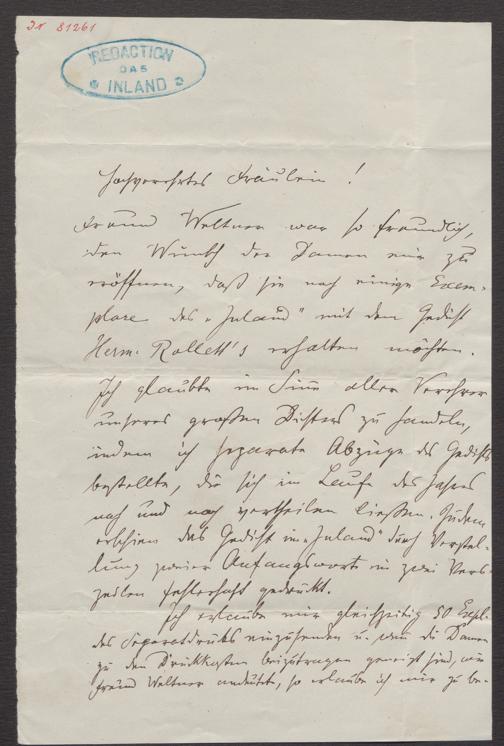 IN 81261
REDACTION
DAS
INLAND
Hochverehrtes Fräulein!
Freund Weltner war so freundlich,
den Wunsch der Damen mir zu
eröffnen, daß sie noch einige Exem-
plare des "Inland" mit dem Gedicht
Herm. Rollett's erhalten möchten.
Ich glaubte im Sinne aller Verehrer
unseres großen Dichters zu handeln,
indem ich separate Abzüge des Gedichts
bestellte, die sich im Laufe des Jahres
nach und nach vertheilen ließen. Zudem
erschien das Gedicht im "Inland" durch Verstel-
lung zweier Anfangsworte in zwei Vers-
zeilen fehlerhaft gedruckt.
Ich erlaube mir gleichzeitig 50 Expl.
des Separatdrucks einzusenden u. wenn die Damen
zu den Druckkosten beizutragen geneigt sind, wie
Freund Weltner andeutete, so erlaube ich mir zu be-